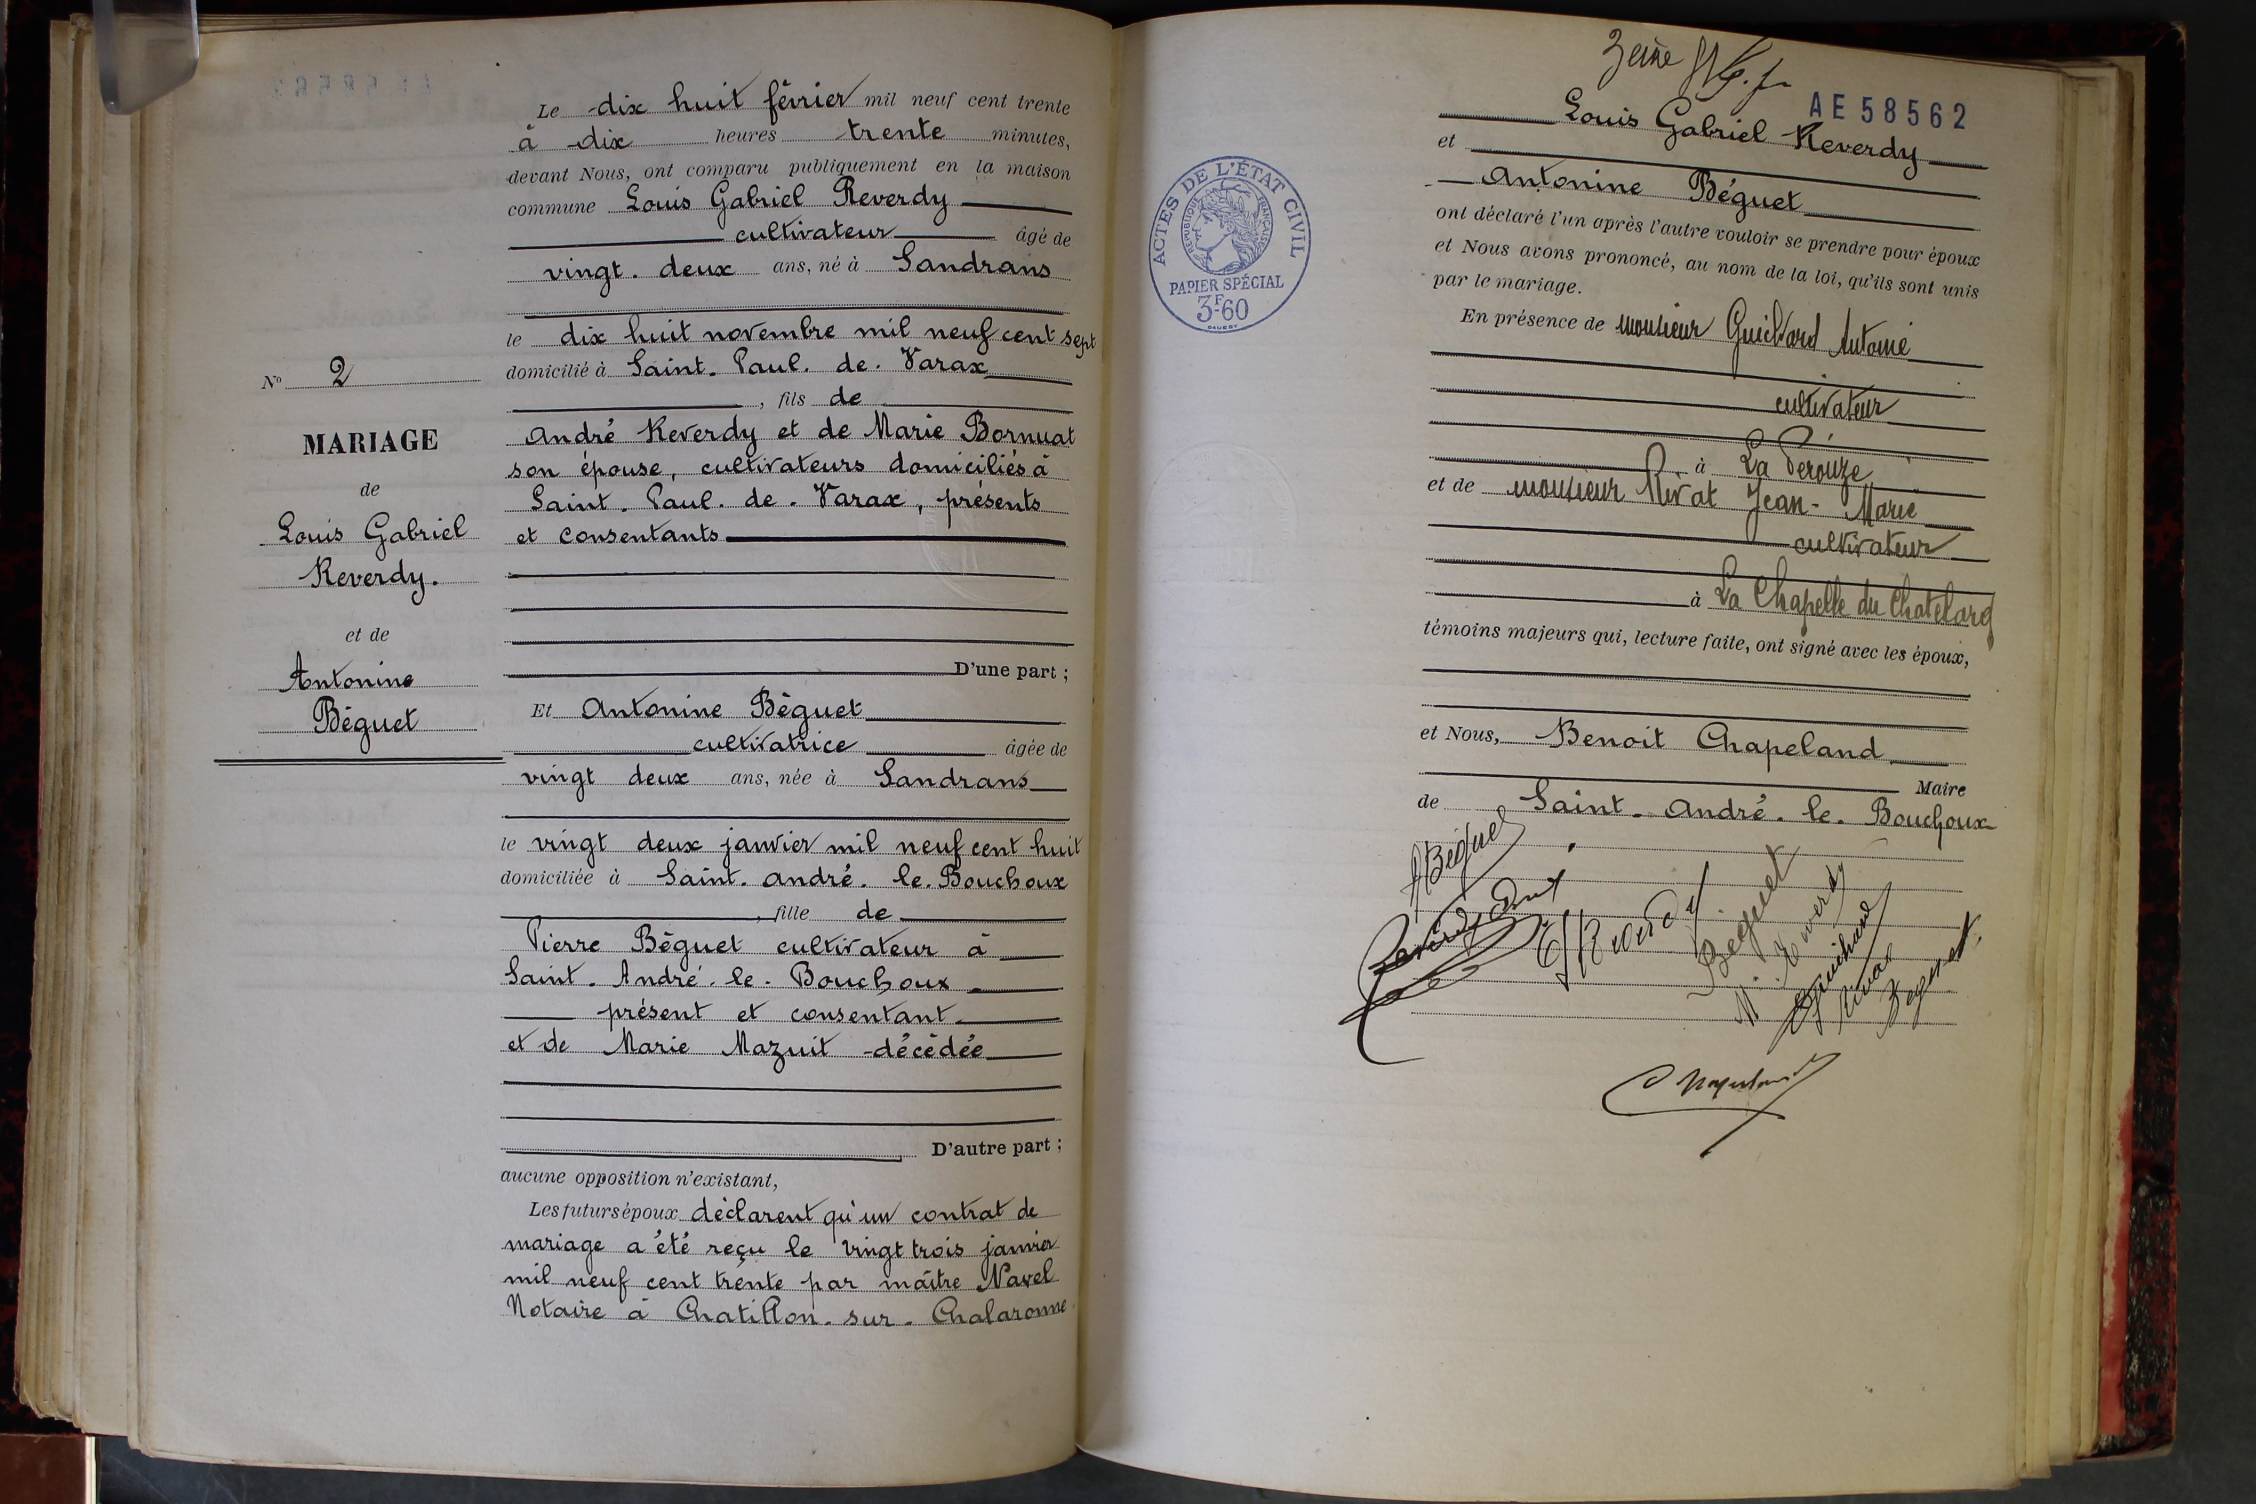 N° 2
MARIAGE
de
Louis Gabriel
Reverdy.
et de
Antonine
Béguet
Le dix huit février mil neuf cent trente
à dix heures trente minutes,
devant Nous, ont comparu publiquement en la maison
commune Louis Gabriel Reverdy
cultivateur âgé de
vingt. deux ans, né à Sandrans
le dix huit novembre mil neuf cent sept
domicilié à Saint. Paul. de. Varax
, fils de
André Reverdy et de Marie Bornuat
son épouse, cultivateurs domiciliés à
Saint. Paul. de. Varax, présents
et consentants
D'une part ;
Et Antonine Béguet
cultivatrice âgée de
vingt deux ans, née à Sandrans
le vingt deux janvier mil neuf cent huit
domiciliée à Saint. André. le. Bouchoux
, fille de
Pierre Béguet cultivateur à
Saint. André. le. Bouchoux
présent et consentant
et de Marie Mazuit décédée
D'autre part ;
aucune opposition n'existant,
Les futurs époux déclarent qu'un contrat de
mariage a été reçu le vingt trois janvier
mil neuf cent trente par maître Navel
Notaire à Chatillon. sur. Chalaronne
AE 58562
Louis Gabriel Reverdy
et
Antonine Béguet
ont déclaré l'un après l'autre vouloir se prendre pour époux
et Nous avons prononcé, au nom de la loi, qu'ils sont unis
par le mariage.
En présence de monsieur Guichard Antoine
cultivateur
à La Pérouze
et de monsieur Rivat Jean-Marie
cultivateur
à La Chapelle du Chatelard
témoins majeurs qui, lecture faite, ont signé avec les époux,
et Nous, Benoit Chapeland
Maire
de Saint. André. le. Bouchoux
A Béguet
Reverdy
Béguet
Guichard
Rivat
Beguet
ACTES DE L'ÉTAT CIVIL
RÉPUBLIQUE FRANÇAISE
PAPIER SPÉCIAL
3F60